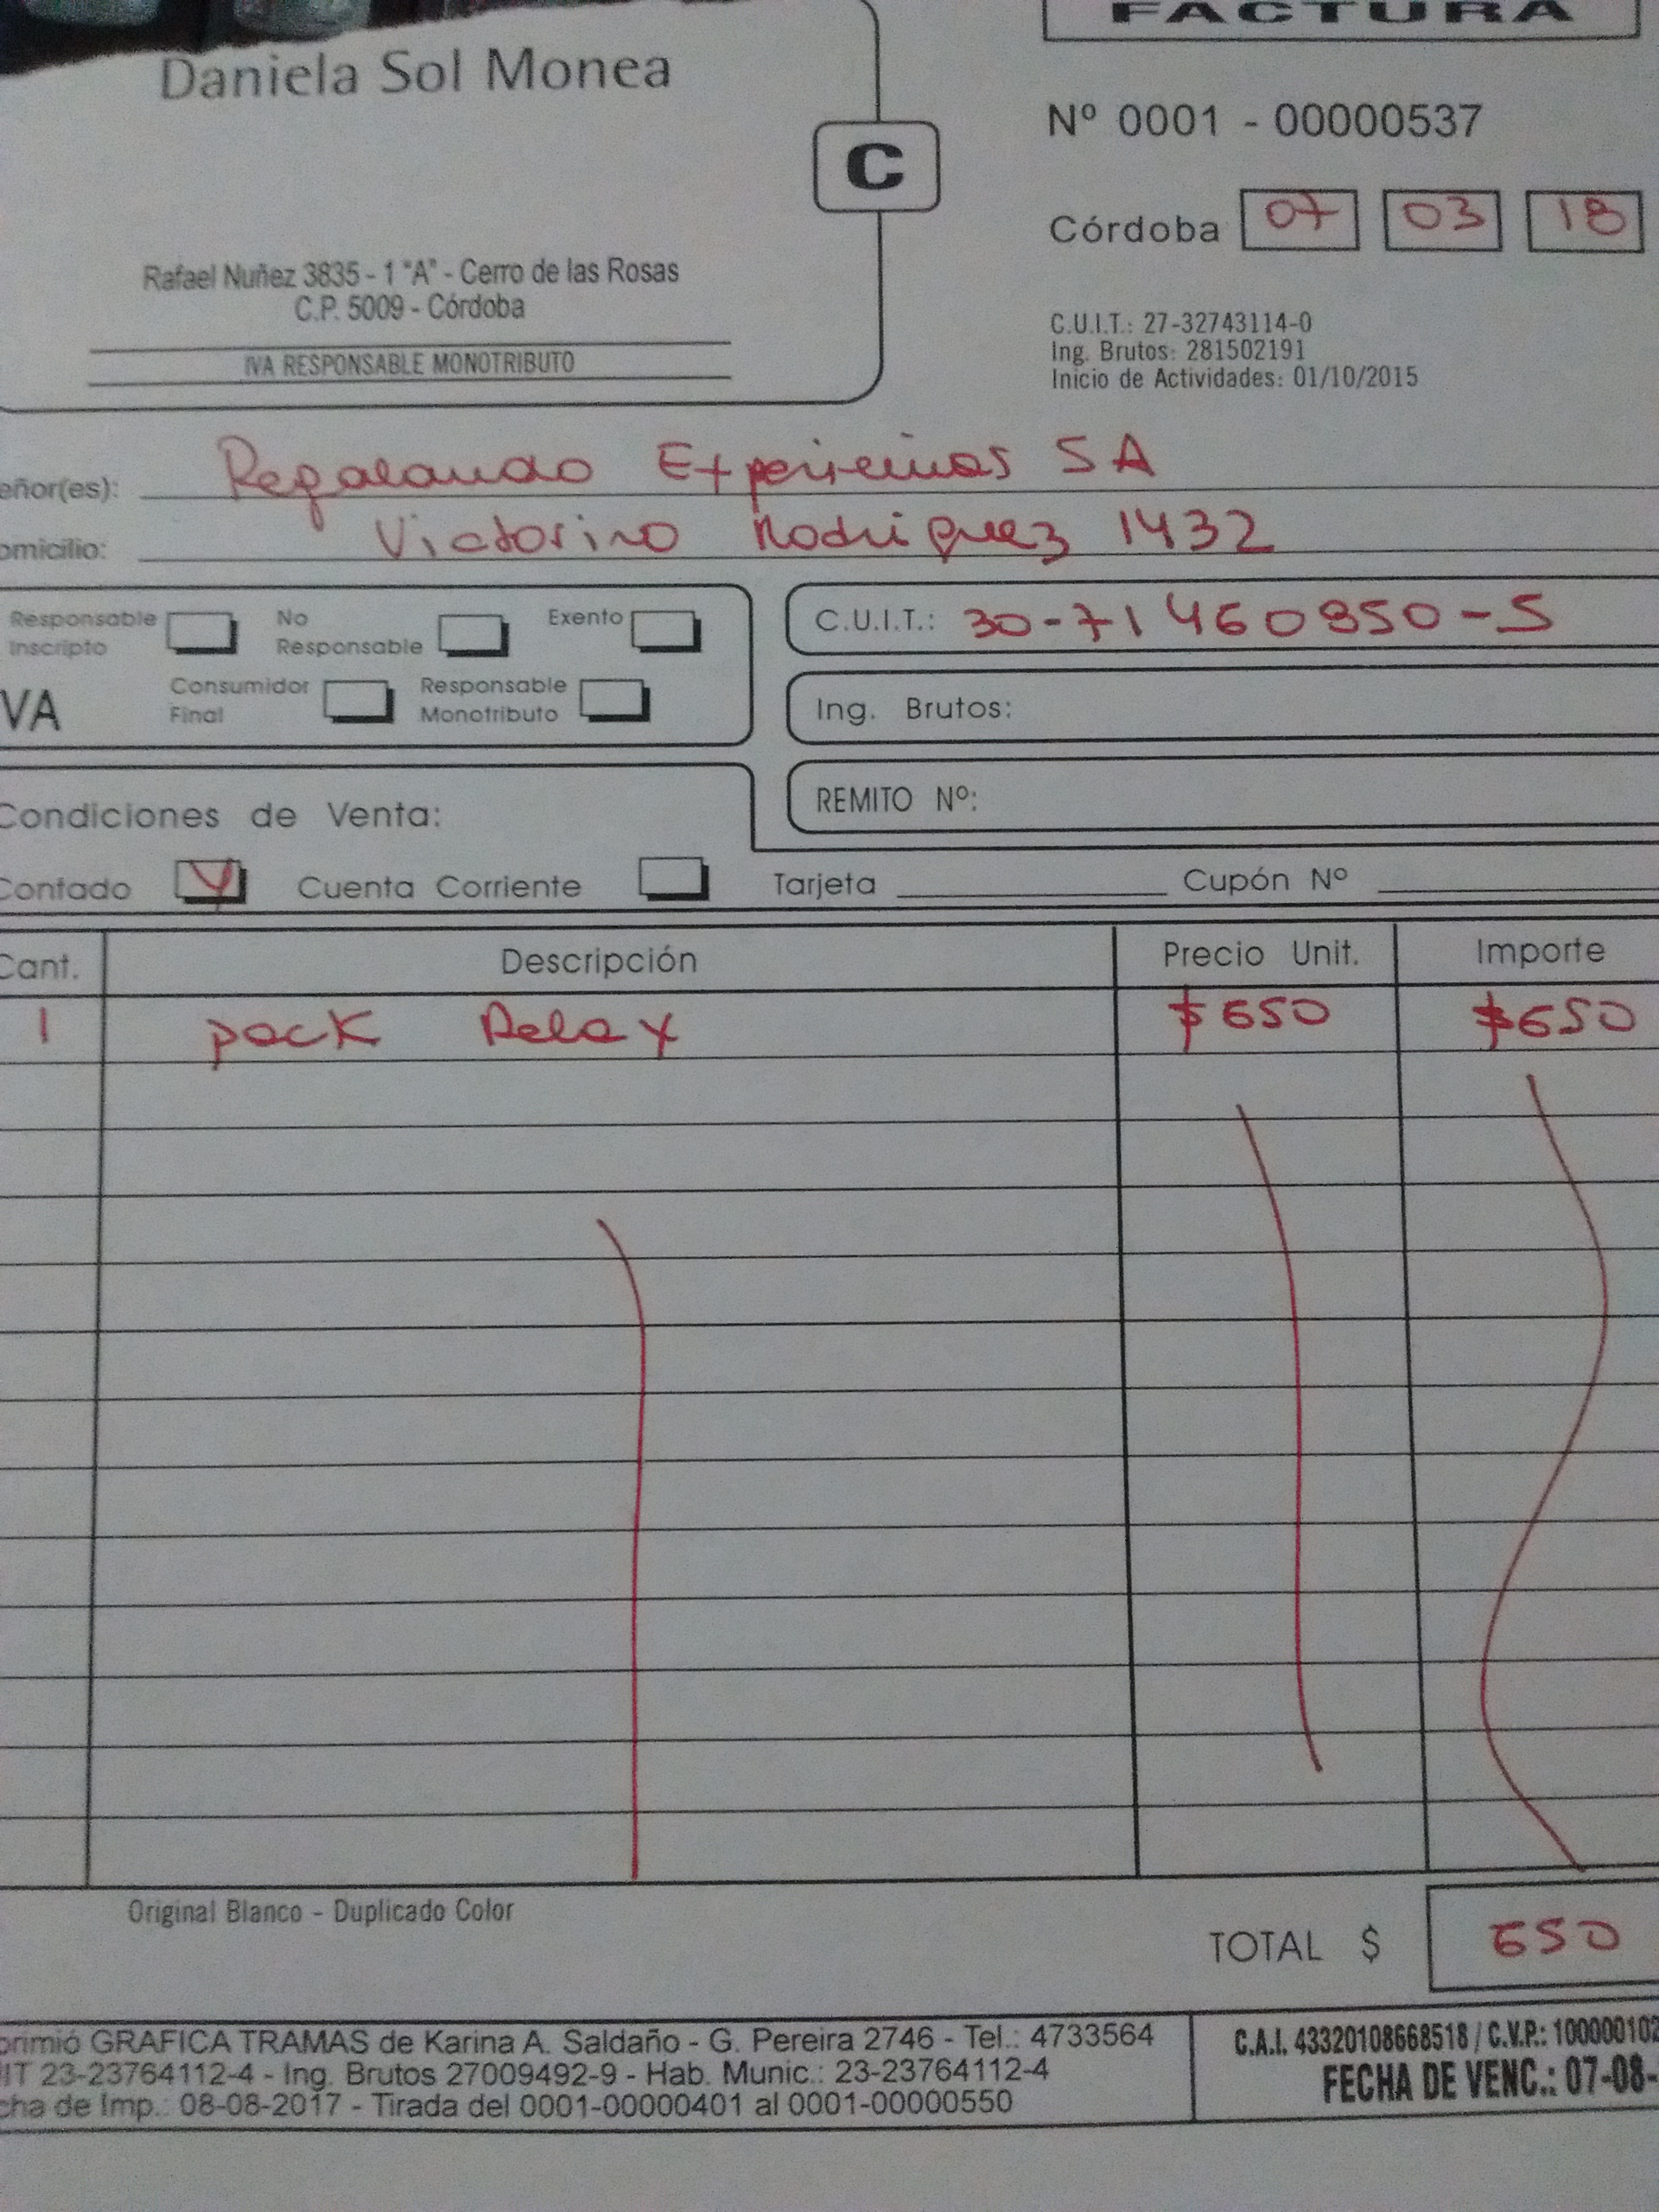 FACTURA
Daniela Sol Monea
C
Nº 0001 - 00000537
Córdoba 07 03 18
Rafael Nuñez 3835 - 1 "A" - Cerro de las Rosas
C.P. 5009 - Córdoba
IVA RESPONSABLE MONOTRIBUTO
C.U.I.T.: 27-32743114-0
Ing. Brutos: 281502191
Inicio de Actividades: 01/10/2015
eñor(es): Regalando Experiencias SA
omicilio: Victorino Rodriguez 1432
Responsable Inscripto No Responsable Exento
VA Consumidor Final Responsable Monotributo
C.U.I.T.: 30-71460950-5
Ing. Brutos:
REMITO Nº:
Condiciones de Venta:
Contado Cuenta Corriente Tarjeta Cupón Nº
Cant. Descripción Precio Unit. Importe
1 pack Relax $650 $650
Original Blanco - Duplicado Color
TOTAL $ 650
primió GRAFICA TRAMAS de Karina A. Saldaño - G. Pereira 2746 - Tel.: 4733564
IT 23-23764112-4 - Ing. Brutos 27009492-9 - Hab. Munic.: 23-23764112-4
cha de Imp.: 08-08-2017 - Tirada del 0001-00000401 al 0001-00000550
C.A.I. 43320108668518 / C.V.P.: 100000102
FECHA DE VENC.: 07-08-